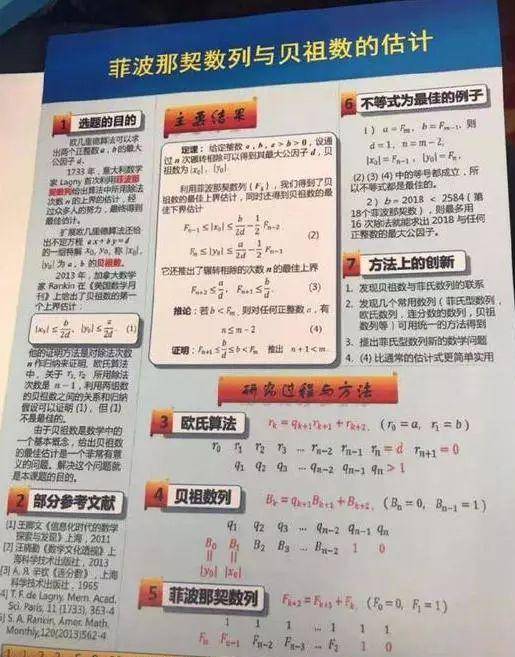 菲波那契数列与贝祖数的估计
1 选题的目的
欧几里德算法可以求
出两个正整数 a , b 的最大
公因子 d.
1733 年, 意大利数学
家 Lagny 首次利用菲波那
契数列给出算法中所用除法
次数 n 的上界的估计, 经
过众多人的努力, 最终得到
最佳估计。
扩展欧几里德算法还给
出不定方程 ax+by=d
的一组特解 x₀, y₀, 称 |x₀|,
|y₀| 为 a, b 的贝祖数。
2013 年, 加拿大数学
家 Rankin 在《美国数学月
刊》上给出了贝祖数的第一
个上界估计:
|x₀| ≤ b/2d, |y₀| ≤ a/2d. (1)
他的证明方法是对除法次数
n 作归纳来证明. 欧几里德算法
中, 关于 r₁, r₂ 所用除法
次数是 n − 1, 利用两组数
的贝祖数之间的关系和归纳
假设可以证明 (1), 但 (1)
不是最佳的。
由于贝祖数是数学中的
一个基本概念, 给出贝祖数
的最佳估计是一个非常有意
义的问题。解决这个问题就
是本课题的目的。
2 部分参考文献
[1] 王卿文《信息化时代的数学
探索与发现》上海, 2011
[2] 汪晓勤《数学文化透视》上
海科学技术出版社, 2013
[3] A. Я. 辛钦《连分数》, 上海
科学技术出版社, 1965
4] T. F. de Lagny. Mem. Acad.
Sci. Paris, 11 (1733), 363-4
5] S. A. Rankin, Amer. Math.
Monthly,120(2013)562-4
主要结果
定理: 给定整数 a, b, a > b > 0, 设通
过 n 次辗转相除可以得到其最大公因子 d, 贝
祖数为 |x₀|, |y₀|.
利用菲波那契数列 {Fₖ}, 我们得到了贝
祖数的最佳上界估计, 同时还得到贝祖数的最
佳下界估计
Fₙ₋₁ ≤ |x₀| ≤ b/2d − 1/2 Fₙ₋₂
(2)
Fₙ ≤ |y₀| ≤ a/2d − 1/2 Fₙ₋₁
它还推出了辗转相除的次数 n 的最佳上界
Fₙ₊₂ ≤ a/d, Fₙ₊₁ ≤ b/d. (3)
推论: 若 b < Fₘ, 则对任何正整数 a, 有
n ≤ m − 2 (4)
证明: Fₙ₊₁ ≤ b/d ≤ b < Fₘ 推出 n + 1 < m.
6 不等式为最佳的例子
1) a = Fₘ, b = Fₘ₋₁, 则
d = 1, n = m − 2,
|x₀| = Fₙ₋₁, |y₀| = Fₙ,
(2) (3) (4) 中的等号都成立, 所
以不等式都是最佳的。
2) b = 2018 < 2584 (第
18个菲波那契数), 则最多用
16 次除法就能求出 2018 与任何
正整数的最大公因子。
7 方法上的创新
1. 发现贝祖数与菲氏数列的联系
2. 发现几个常用数列 (菲氏型数列,
欧氏数列, 连分数的数列, 贝祖
数列等) 可用统一的方法得到
3. 提出菲氏型数列新的数学问题
4. (4) 比通常的估计式更简单实用
研究过程与方法
3 欧氏算法 rₖ = qₖ₊₁rₖ₊₁ + rₖ₊₂, (r₀ = a, r₁ = b)
r₀ r₁ r₂ r₃ ... rₙ₋₂ rₙ₋₁ rₙ = d rₙ₊₁ = 0
q₁ q₂ q₃ ... qₙ₋₂ qₙ₋₁ qₙ > 1
4 贝祖数列 Bₖ = qₖ₊₁Bₖ₊₁ + Bₖ₊₂, (Bₙ = 0, Bₙ₋₁ = 1)
q₁ q₂ q₃ ... qₙ₋₂ qₙ₋₁ qₙ
B₀ B₁ B₂ B₃ ... Bₙ₋₂ 1 0
|| ||
|y₀| |x₀|
5 菲波那契数列 Fₖ₊₂ = Fₖ₊₁ + Fₖ, (F₀ = 0, F₁ = 1)
1 1 1 ... 1 1 1
Fₙ Fₙ₋₁ Fₙ₋₂ Fₙ₋₃ ... F₂ 1 0